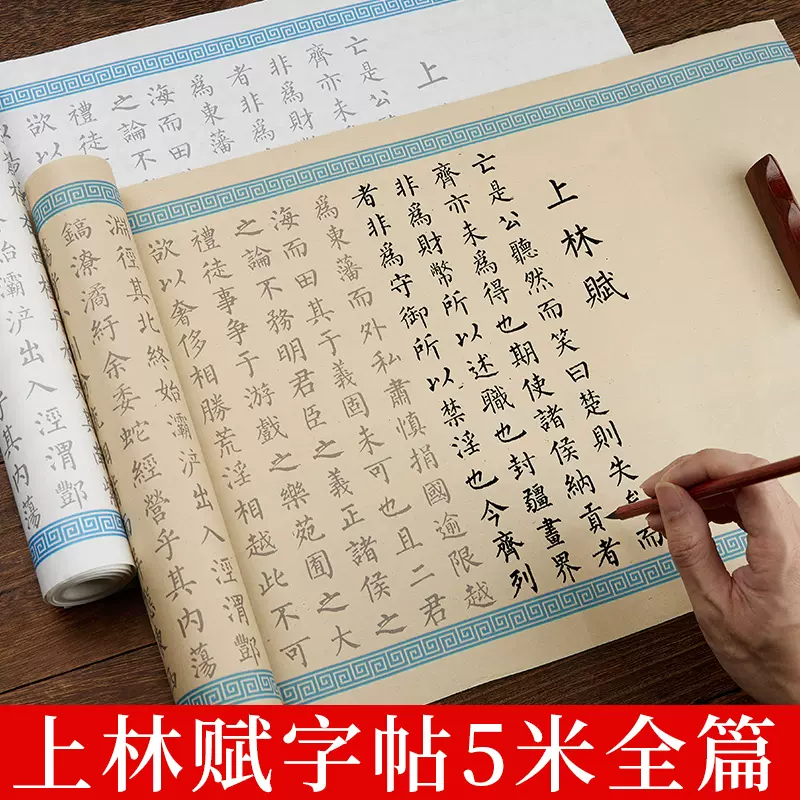 上林賦
亡是公聽然而笑曰楚則失而
齊亦未爲得也期使諸侯納貢者
非爲財幣所以述職也封疆畫界
者非爲守御所以禁淫也今齊列
爲東藩而外私肅慎捐國逾限越
海而田其于義固未可也且二君
之論不務明君臣之義正諸侯之
禮徒事争于游戲之樂苑囿之大
欲以奢侈相勝荒淫相越此不可
淵徑其北終始灞浐出入涇渭酆
鎬潦潏紆余委蛇經營乎其内蕩
上
亡是公
齊亦未
非爲財
者非爲
爲東藩
海而田
之論不
禮徒
欲以
始灞浐出入涇渭酆
乎其内蕩
上林赋字帖5米全篇